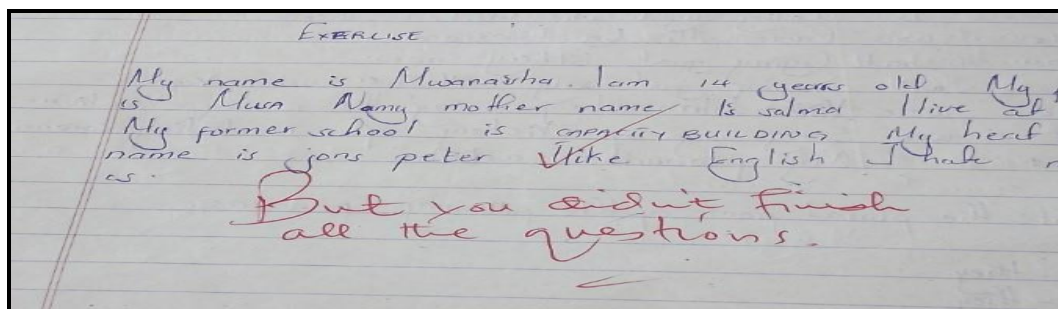 EXERCISE
My name is Mwanaisha. Iam 14 years old My
is Musa Namy mother name Is salma Ilive at
My former school is CAPACITY BUILDING My heaf
name is jons peter Ilike English I hate
cs.
But you didn't finish
all the questions.